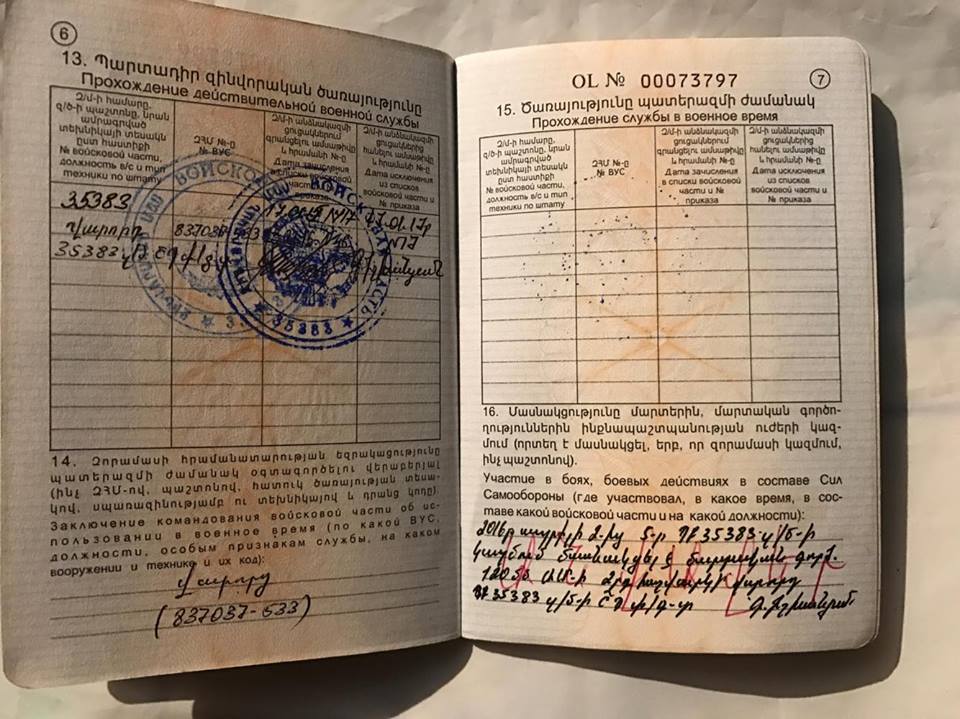 6
13. Պարտադիր զինվորական ծառայությունը
Прохождение действительной военной службы
Զ/մ-ի համարը,
զ/ծ-ի պաշտոնը, նրան
ամրագրված
տեխնիկայի տեսակն
ըստ հաստիքի
№ войсковой части,
должность в/с и тип
техники по штату
ԶՀՄ №-ը
№ ВУС
Զ/մ-ի անձնակազմի
ցուցակներում
գրանցելու ամսաթիվը
և հրամանի №-ը
Дата зачисления
в списки войсковой
части и №
приказа
Զ/մ-ի անձնակազմի
ցուցակներից
հանելու ամսաթիվը
և հրամանի №-ը
Дата исключения
из списков
войсковой части и
№ приказа
35383
վարորդ 837037
35383
ВОЙСКОВАЯ ЧАСТЬ
★ 35383 ★
14. Զորամասի հրամանատարության եզրակացությունը
պատերազմի ժամանակ օգտագործելու վերաբերյալ
(ինչ ԶՀՄ-ով, պաշտոնով, հատուկ ծառայության տեսա-
կով, սպառազինությամբ ու տեխնիկայով և դրանց կոդը)
Заключение командования войсковой части об ис-
пользовании в военное время (по какой ВУС,
должности, особым признакам службы, на каком
вооружении и технике и их код):
վարորդ
(837037-533)
OL № 00073797
7
15. Ծառայությունը պատերազմի ժամանակ
Прохождение службы в военное время
Զ/մ-ի համարը,
զ/ծ-ի պաշտոնը, նրան
ամրագրված
տեխնիկայի տեսակն
ըստ հաստիքի
№ войсковой части,
должность в/с и тип
техники по штату
ԶՀՄ №-ը
№ ВУС
Զ/մ-ի անձնակազմի
ցուցակներում
գրանցելու ամսաթիվը
և հրամանի №-ը
Дата зачисления
в списки войсковой
части и №
приказа
Զ/մ-ի անձնակազմի
ցուցակներից
հանելու ամսաթիվը
և հրամանի №-ը
Дата исключения
из списков
войсковой части и
№ приказа
16. Մասնակցությունը մարտերին, մարտական գործո-
ղություններին ինքնապաշտպանության ուժերի կազ-
մում (որտեղ է մասնակցել, երբ, որ զորամասի կազմում,
ինչ պաշտոնով).
Участие в боях, боевых действиях в составе Сил
Самообороны (где участвовал, в какое время, в сос-
таве какой войсковой части и на какой должности):
2016թ ապրիլի 2-ից 5-ը 35383
կազմում մասնակցել է մարտական գործ.
վարորդ
35383